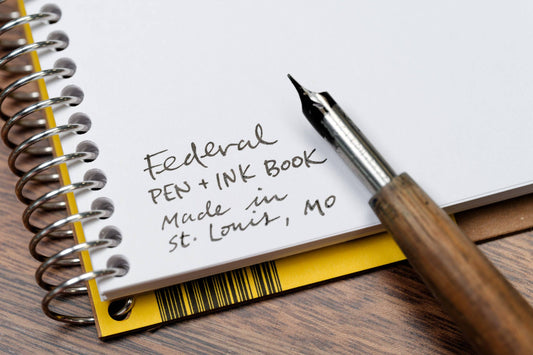 Federal
PEN + INK BOOK
Made in
St. Louis, MO